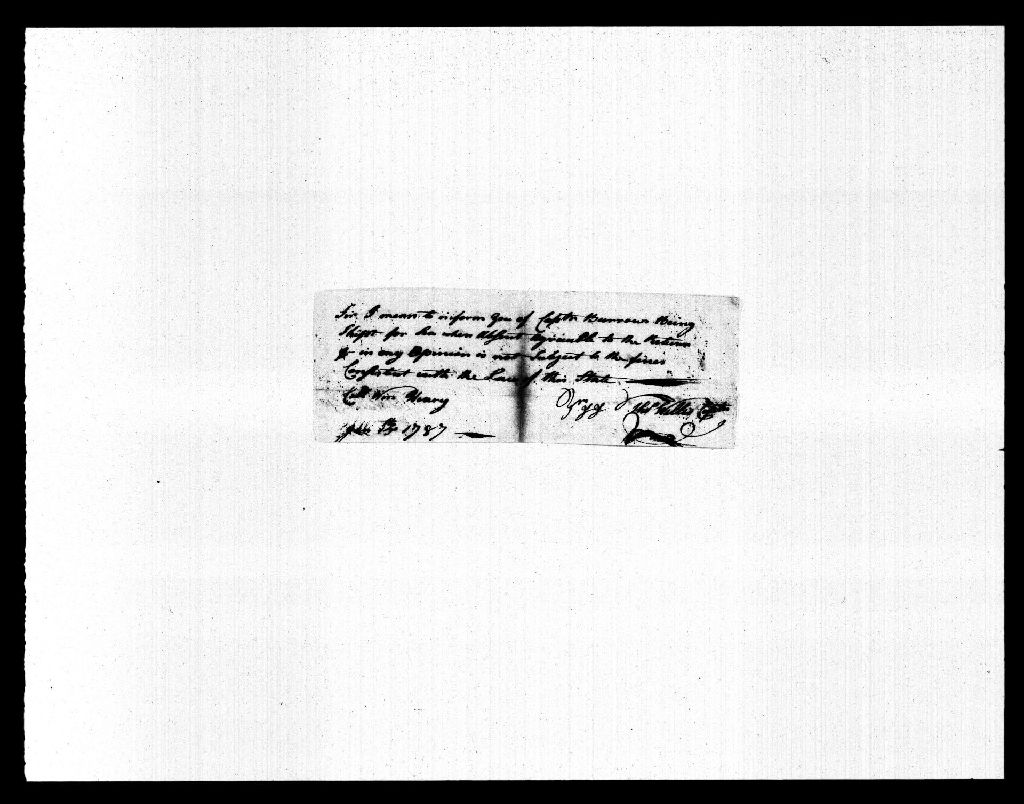 Sir I mean to inform you of Capt Burrows Being
for when Absent agreeable to the Return
& in my Opinion is not Subject to the fines
Consistent with the Law of this State
Coll Wm Henry
1787